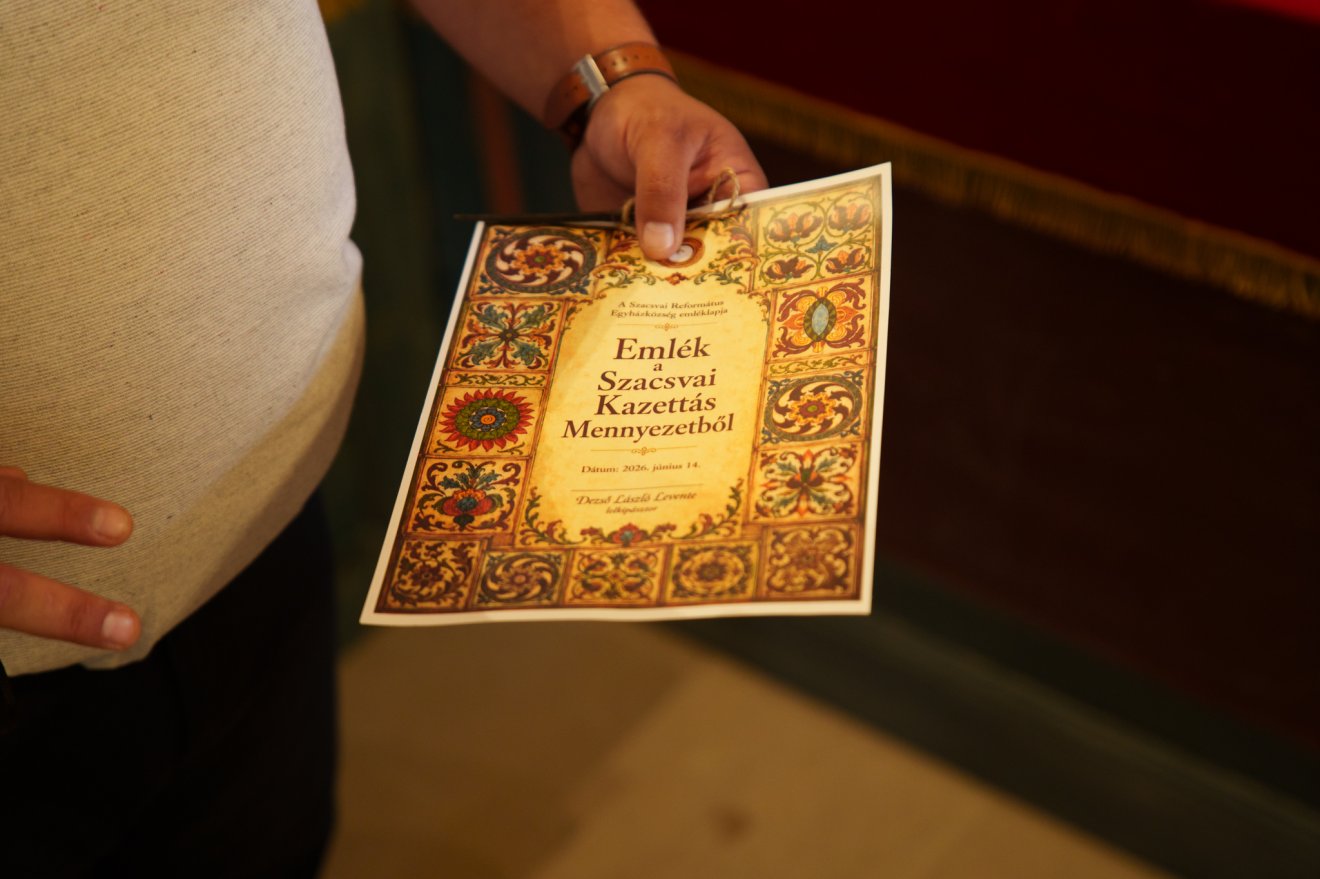 A Szacsvai Református
Egyházközség emléklapja
Emlék
a
Szacsvai
Kazettás
Mennyezetből
Dátum: 2026. június 14.
Dezső László Levente
lelkipásztor